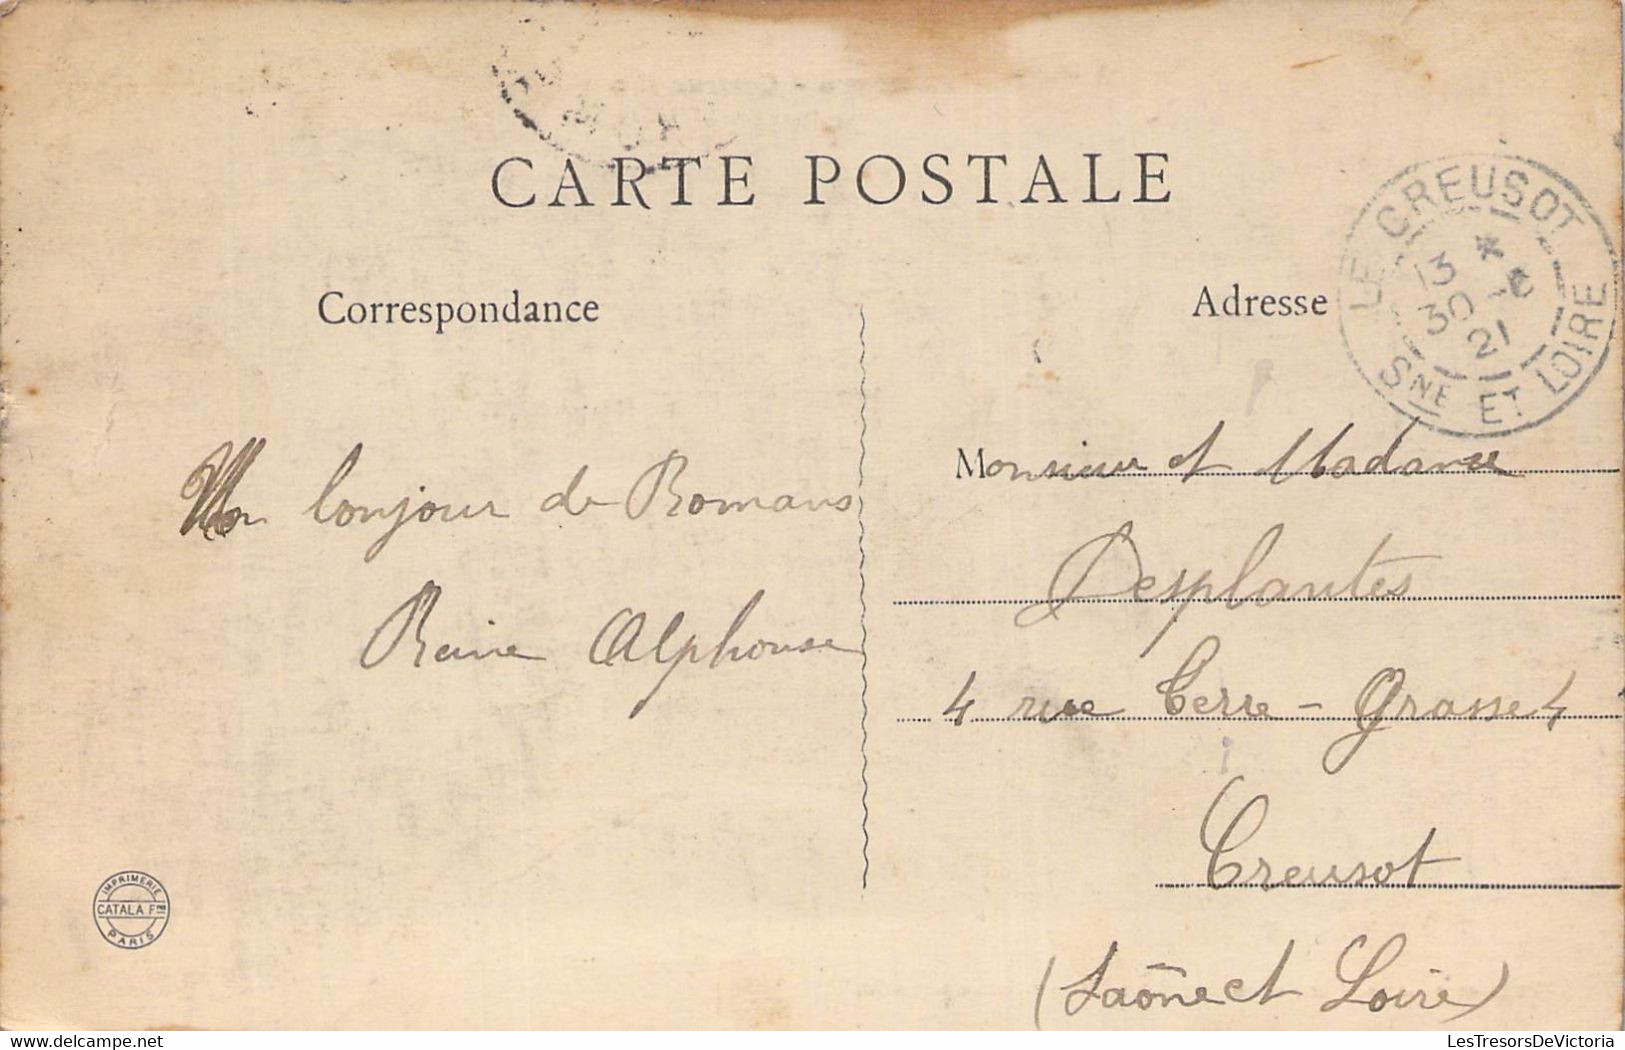 CARTE POSTALE
Correspondance
Adresse
LE CREUSOT
13 *
30 -6
21
SNE ET LOIRE
Un bonjour de Romans
Reine Alphonse
Monsieur et Madame
Desplantes
4 rue Terre-Grasse 4
Creusot
(Saône et Loire)
IMPRIMERIE
CATALA Fres
PARIS
LesTresorsDeVictoria